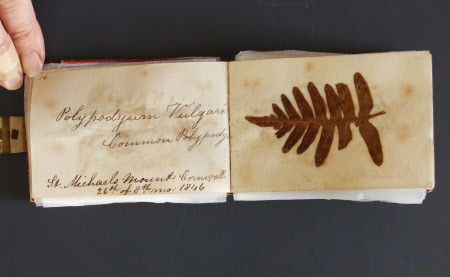 16
Polypodyum Vulgaré
Common Polypody
St. Michaels Mount Cornwall
26th of 8th mo. 1846